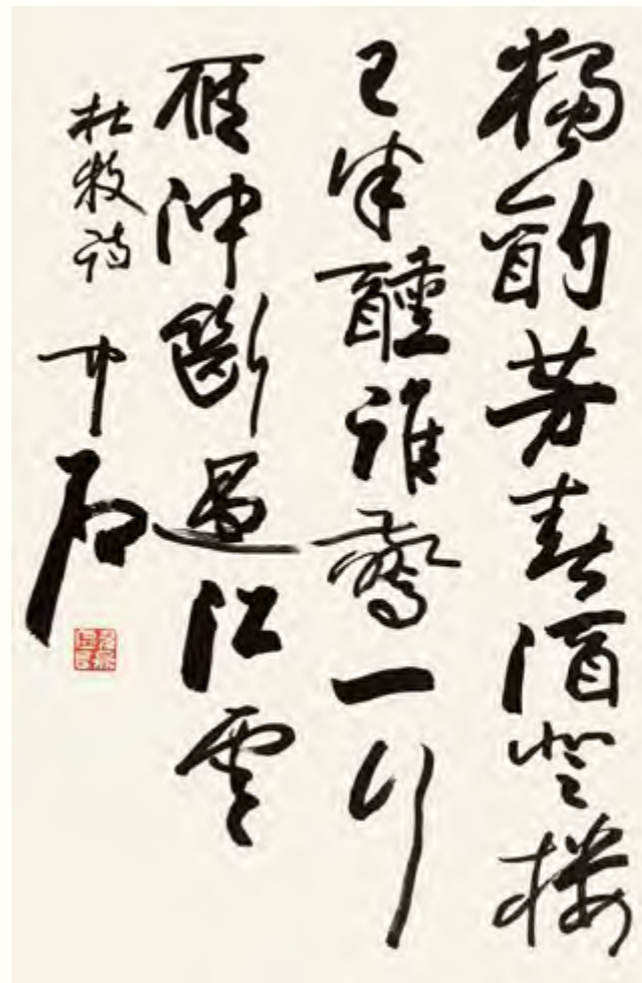 獨酌芳春酒登楼
已半醺谁驚一行
雁冲斷過江雲
杜牧诗 中石